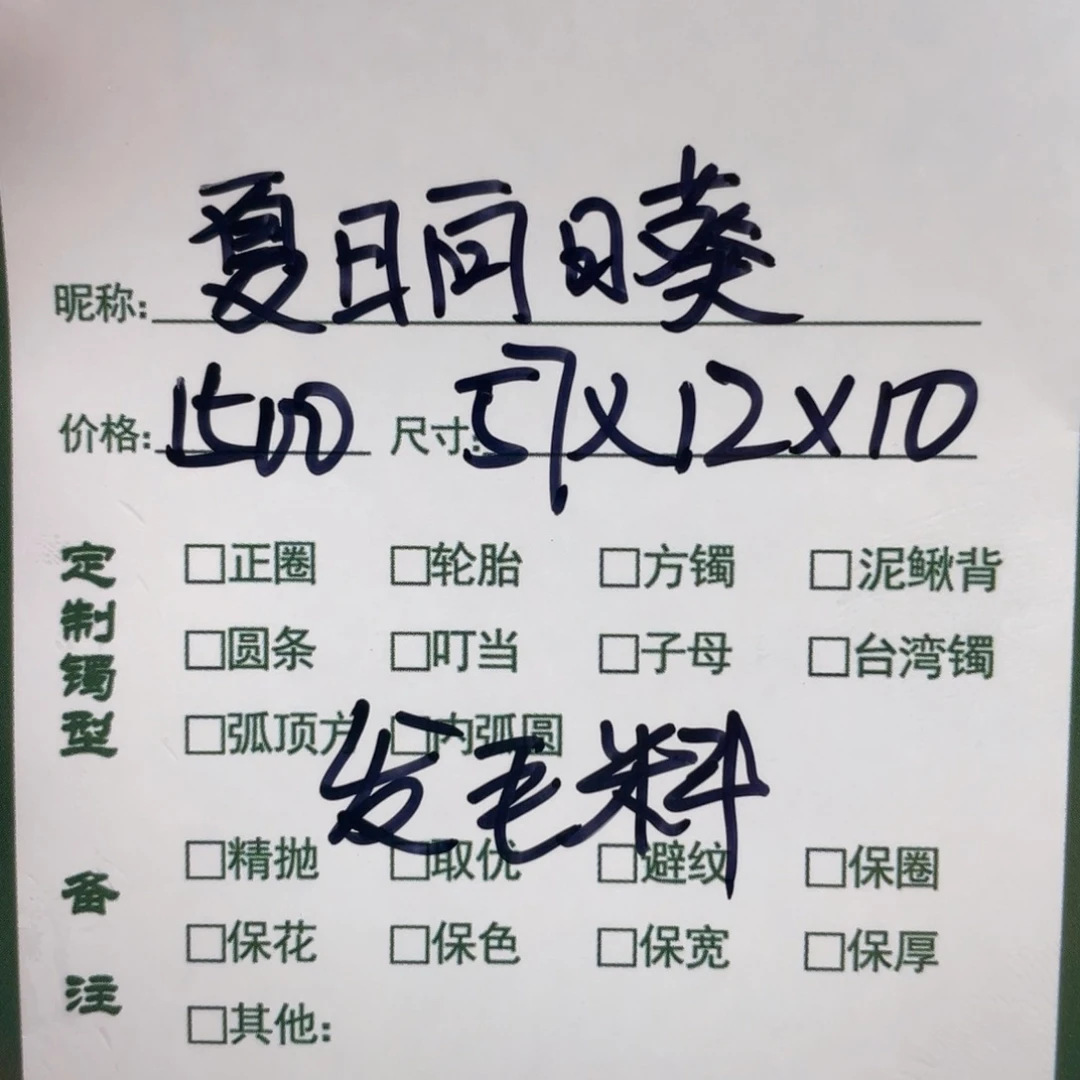 昵称:夏日向日葵
价格:1500 尺寸:57X12X10
定制镯型
□正圈 □轮胎 □方镯 □泥鳅背
□圆条 □叮当 □子母 □台湾镯
□弧顶方 □内弧圆
发毛料
备注
□精抛 □取优 □避纹 □保圈
□保花 □保色 □保宽 □保厚
□其他: